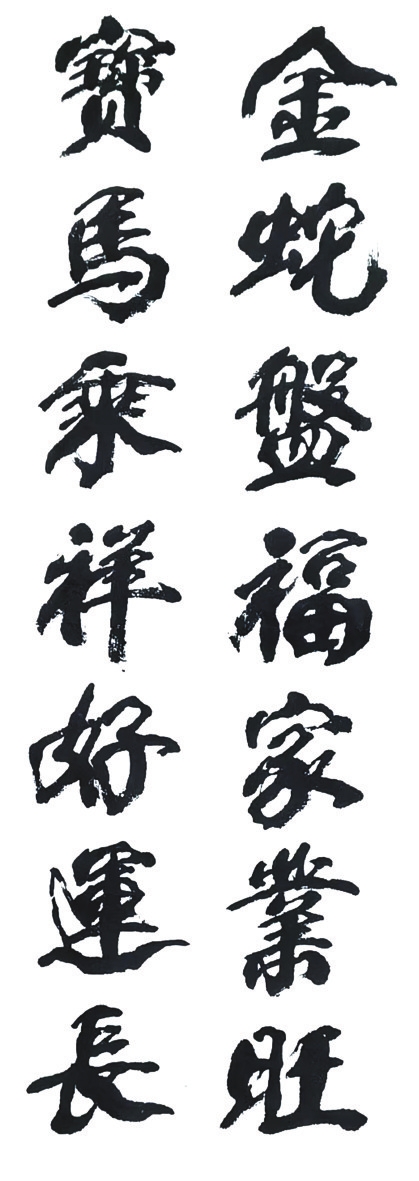 金蛇盤福家業旺
寶馬乘祥好運長